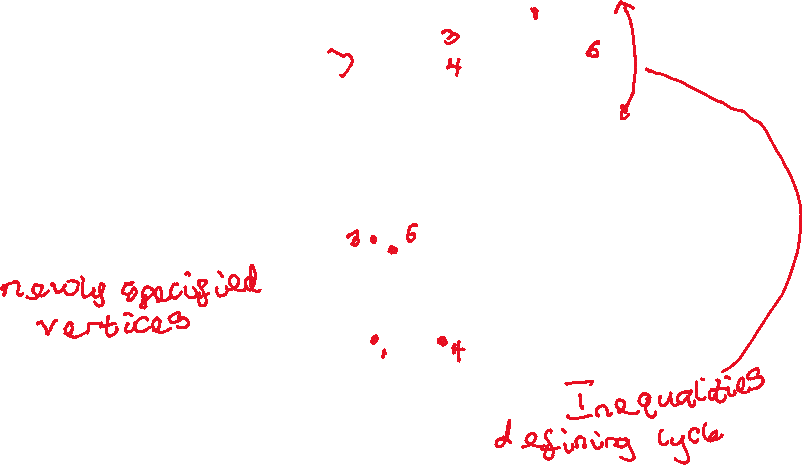 3
4
6
8
3
6
newly specified
vertices
1
4
Inequalities
defining cycle